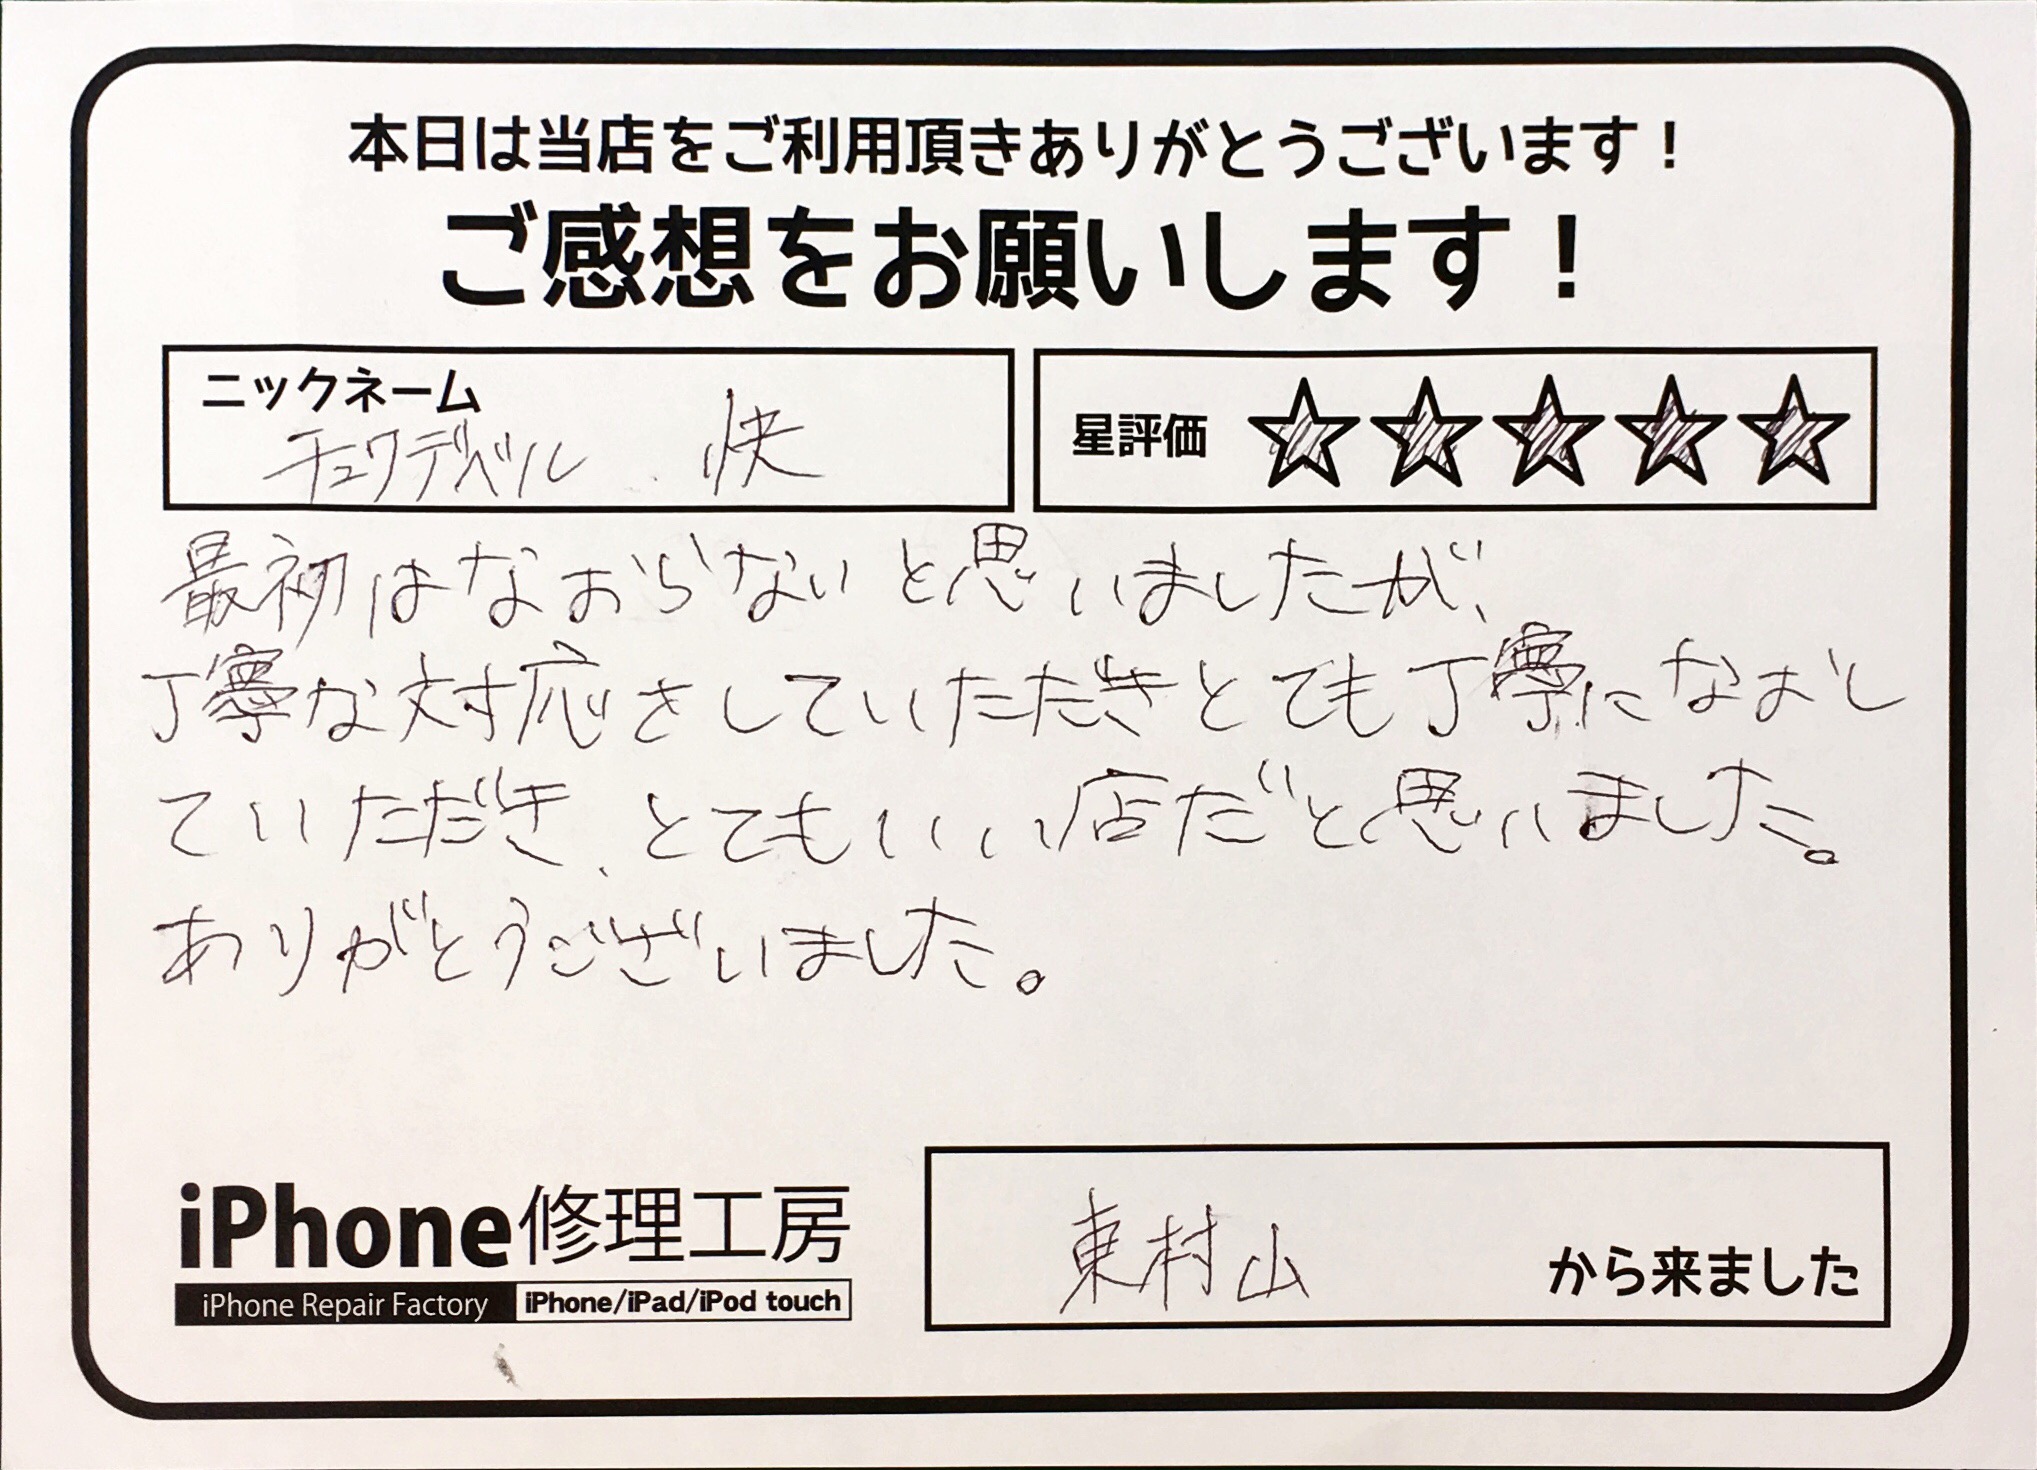 本日は当店をご利用頂きありがとうございます！
ご感想をお願いします！
ニックネーム
チュワデベル 快
星評価 ★★★★★
最初はなおらないと思いましたが、
丁寧な対応をしていただきとても丁寧になおし
ていただき、とてもいい店だと思いました。
ありがとうございました。
iPhone修理工房
iPhone Repair Factory iPhone/iPad/iPod touch
東村山 から来ました